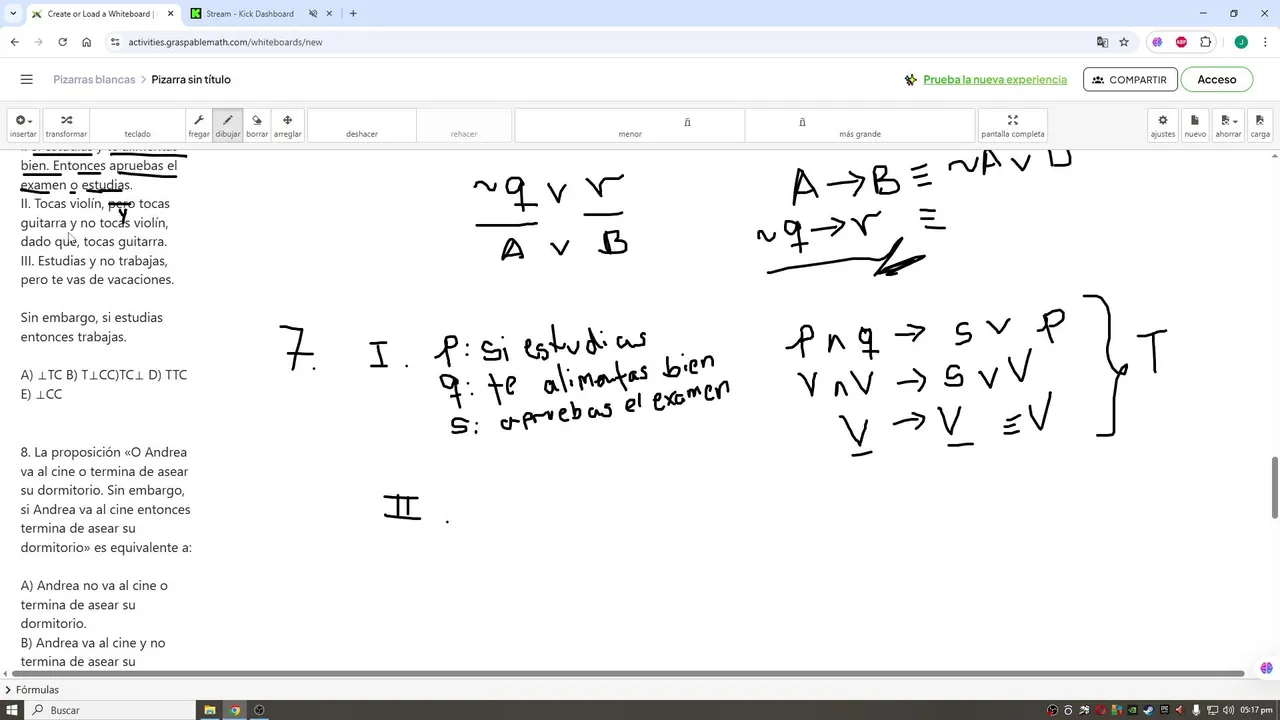 Create or Load a Whiteboard |
Stream - Kick Dashboard
activities.graspablemath.com/whiteboards/new
Pizarras blancas > Pizarra sin título
Prueba la nueva experiencia
COMPARTIR
Acceso
insertar transformar teclado fregar dibujar borrar arreglar deshacer rehacer menor más grande pantalla completa ajustes nuevo ahorrar carga
bien. Entonces apruebas el
examen o estudias.
II. Tocas violín, pero tocas
y
guitarra y no tocas violín,
dado que, tocas guitarra.
III. Estudias y no trabajas,
pero te vas de vacaciones.
Sin embargo, si estudias
entonces trabajas.
A) ⊥TC B) T⊥CC)TC⊥ D) TTC
E) ⊥CC
8. La proposición «O Andrea
va al cine o termina de asear
su dormitorio. Sin embargo,
si Andrea va al cine entonces
termina de asear su
dormitorio» es equivalente a:
A) Andrea no va al cine o
termina de asear su
dormitorio.
B) Andrea va al cine y no
termina de asear su
~q v r
A v B
A → B ≡ ~A v B
~q → r ≡
7. I. p: si estudias
q: te alimentas bien
s: apruebas el examen
p ∧ q → s v p
V ∧ V → s v V
V → V ≡ V
T
II.
Fórmulas
Buscar
05:17 pm